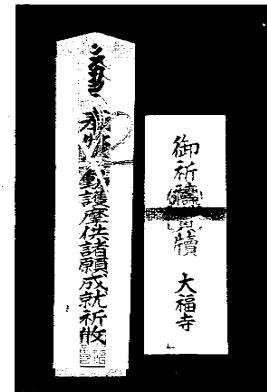 御祈禱牘 大福寺
奉動護摩供諸願成就祈攸